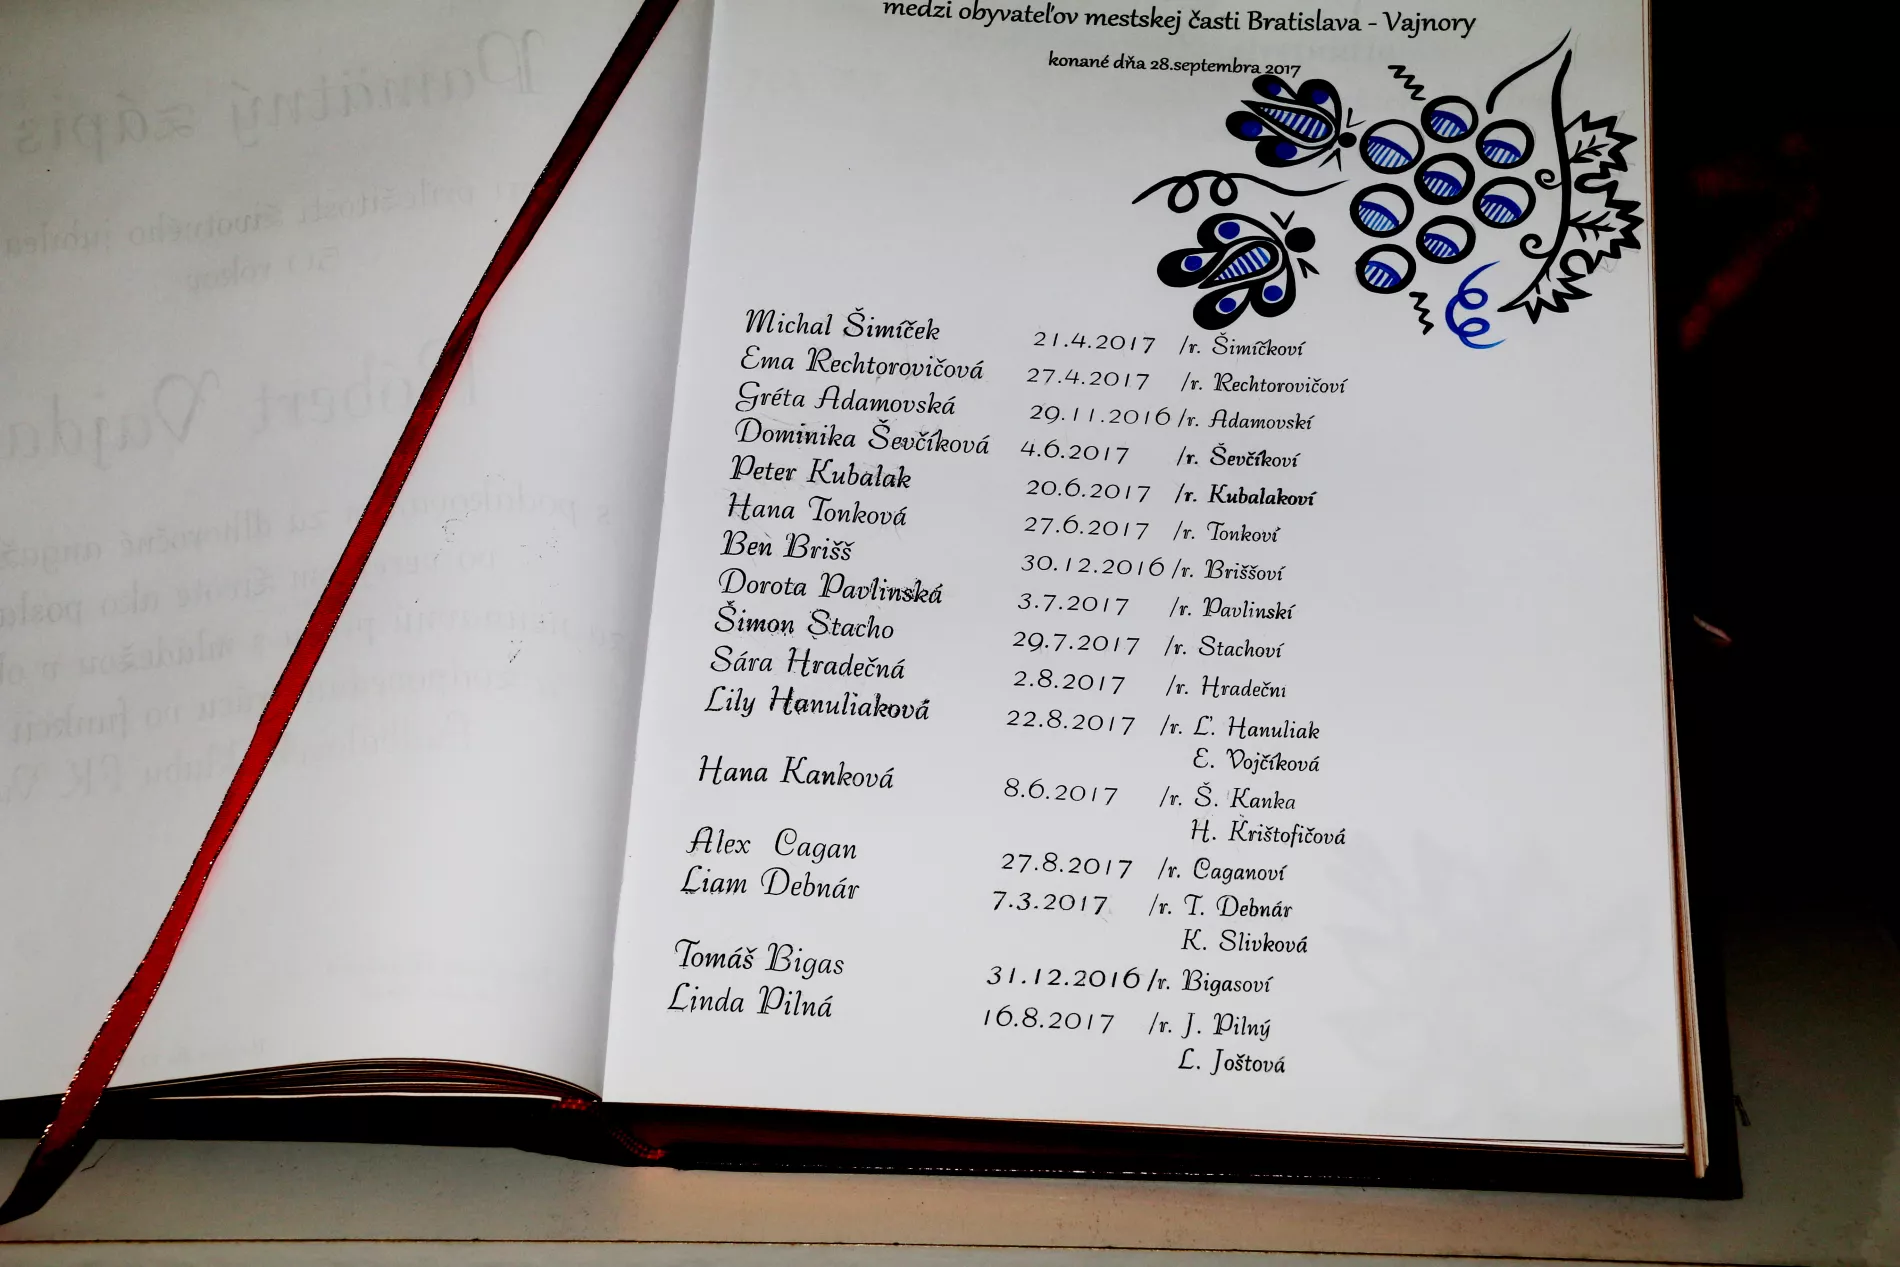 medzi obyvateľov mestskej časti Bratislava - Vajnory
konané dňa 28.septembra 2017
Michal Šimíček 21.4.2017 /r. Šimíčkoví
Ema Rechtorovičová 27.4.2017 /r. Rechtorovičoví
Gréta Adamovská 29.11.2016 /r. Adamovskí
Dominika Ševčíková 4.6.2017 /r. Ševčíkoví
Peter Kubalak 20.6.2017 /r. Kubalakoví
Hana Tonková 27.6.2017 /r. Tonkoví
Ben Brišš 30.12.2016 /r. Briššoví
Dorota Pavlinská 3.7.2017 /r. Pavlinskí
Šimon Stacho 29.7.2017 /r. Stachoví
Sára Hradečná 2.8.2017 /r. Hradečni
Lily Hanuliaková 22.8.2017 /r. Ľ. Hanuliak
E. Vojčíková
Hana Kanková 8.6.2017 /r. Š. Kanka
H. Krištofičová
Alex Cagan 27.8.2017 /r. Caganoví
Liam Debnár 7.3.2017 /r. T. Debnár
K. Slivková
Tomáš Bigas 31.12.2016 /r. Bigasoví
Linda Pilná 16.8.2017 /r. J. Pilný
L. Joštová